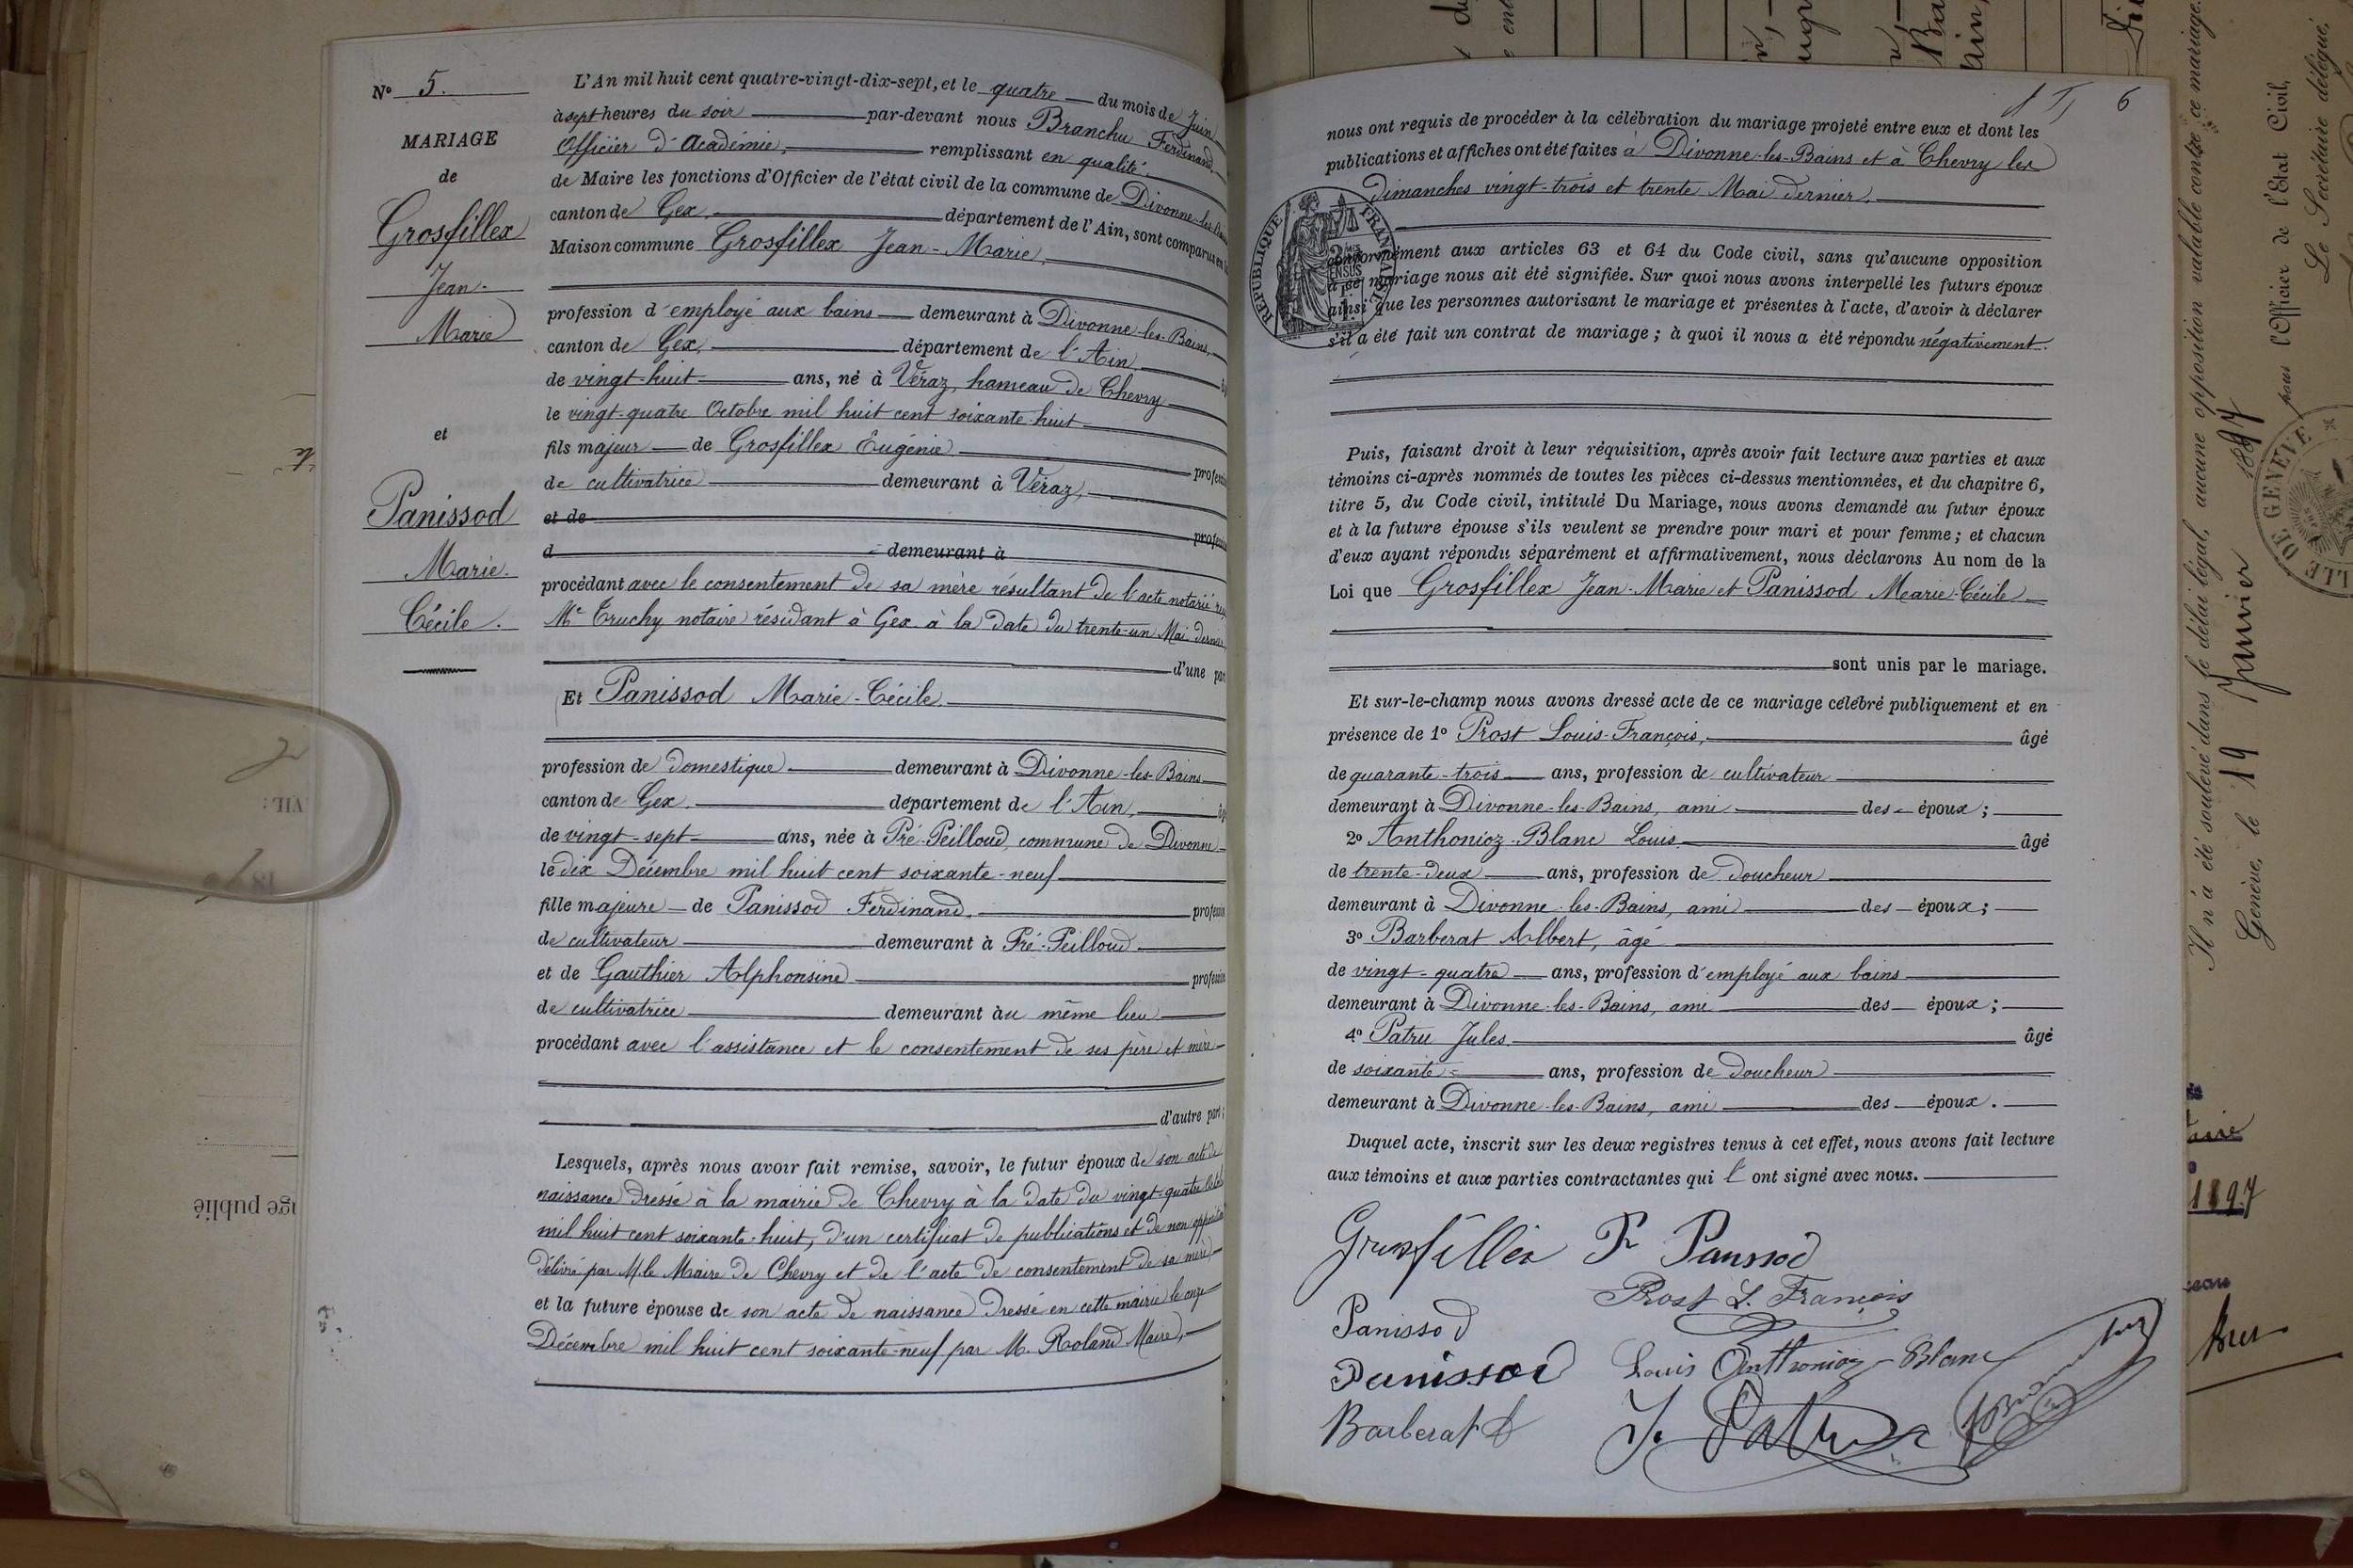 N° 5.
MARIAGE
de
Grosfillex
Jean-
Marie
et
Panissod
Marie.
Cécile.
L'An mil huit cent quatre-vingt-dix-sept, et le quatre du mois de Juin
à sept heures du soir par-devant nous Branchu Ferdinand,
Officier d'Académie, remplissant en qualité
de Maire les fonctions d'Officier de l'état civil de la commune de Divonne-les-
canton de Gex, département de l'Ain, sont comparus en
Maison commune Grosfillex Jean-Marie,
profession d'employé aux bains demeurant à Divonne-les-Bains,
canton de Gex, département de l'Ain,
de vingt-huit ans, né à Véraz, hameau de Chevry
le vingt-quatre Octobre mil huit cent soixante-huit
fils majeur de Grosfillex Eugénie
de cultivatrice demeurant à Véraz,
et de
d demeurant à
procédant avec le consentement de sa mère résultant de l'acte notarié
Me Truchy notaire résidant à Gex à la date du trente-un Mai dernier
d'une part
Et Panissod Marie-Cécile
profession de domestique demeurant à Divonne-les-Bains
canton de Gex. département de l'Ain,
de vingt-sept ans, née à Pré-Peilloud, commune de Divonne
le dix Décembre mil huit cent soixante-neuf
fille majeure de Panissod Ferdinand, profession
de cultivateur demeurant à Pré-Peilloud
et de Gauthier Alphonsine profession
de cultivatrice demeurant au même lieu
procédant avec l'assistance et le consentement de ses père et mère
d'autre part;
Lesquels, après nous avoir fait remise, savoir, le futur époux de son acte de
naissance dressé à la mairie de Chevry à la date du vingt-quatre
mil huit cent soixante-huit, d'un certificat de publications et de non opposition
délivré par M. le Maire de Chevry et de l'acte de consentement de sa mère,
et la future épouse de son acte de naissance dressé en cette mairie le onze
Décembre mil huit cent soixante-neuf par M. Roland Maire,
6
nous ont requis de procéder à la célébration du mariage projeté entre eux et dont les
publications et affiches ont été faites à Divonne-les-Bains et à Chevry les
dimanches vingt-trois et trente Mai dernier.
RÉPUBLIQUE FRANÇAISE
conformément aux articles 63 et 64 du Code civil, sans qu'aucune opposition
à ce mariage nous ait été signifiée. Sur quoi nous avons interpellé les futurs époux
ainsi que les personnes autorisant le mariage et présentes à l'acte, d'avoir à déclarer
s'il a été fait un contrat de mariage; à quoi il nous a été répondu négativement.
Puis, faisant droit à leur réquisition, après avoir fait lecture aux parties et aux
témoins ci-après nommés de toutes les pièces ci-dessus mentionnées, et du chapitre 6,
titre 5, du Code civil, intitulé Du Mariage, nous avons demandé au futur époux
et à la future épouse s'ils veulent se prendre pour mari et pour femme; et chacun
d'eux ayant répondu séparément et affirmativement, nous déclarons Au nom de la
Loi que Grosfillex Jean-Marie et Panissod Marie-Cécile
sont unis par le mariage.
Et sur-le-champ nous avons dressé acte de ce mariage célébré publiquement et en
présence de 1° Prost Louis-François, âgé
de quarante-trois ans, profession de cultivateur
demeurant à Divonne-les-Bains, ami des époux;
2° Anthonioz-Blanc Louis, âgé
de trente-deux ans, profession de doucheur
demeurant à Divonne-les-Bains, ami des époux;
3° Barberat Albert, âgé
de vingt-quatre ans, profession d'employé aux bains
demeurant à Divonne-les-Bains, ami des époux;
4° Patru Jules âgé
de soixante ans, profession de doucheur
demeurant à Divonne-les-Bains, ami des époux.
Duquel acte, inscrit sur les deux registres tenus à cet effet, nous avons fait lecture
aux témoins et aux parties contractantes qui l'ont signé avec nous.
Grosfillex Panissod
Prost L. François
Panissod
Panissod Louis Anthonioz-Blanc
Barberat J. Patru
Il n'a été soulevé dans le délai légal, aucune opposition valable contre ce mariage.
Genève, le 19 Janvier 1897
pour l'Officier de l'Etat Civil,
Le Secrétaire délégué,
VILLE DE GENÈVE
1897